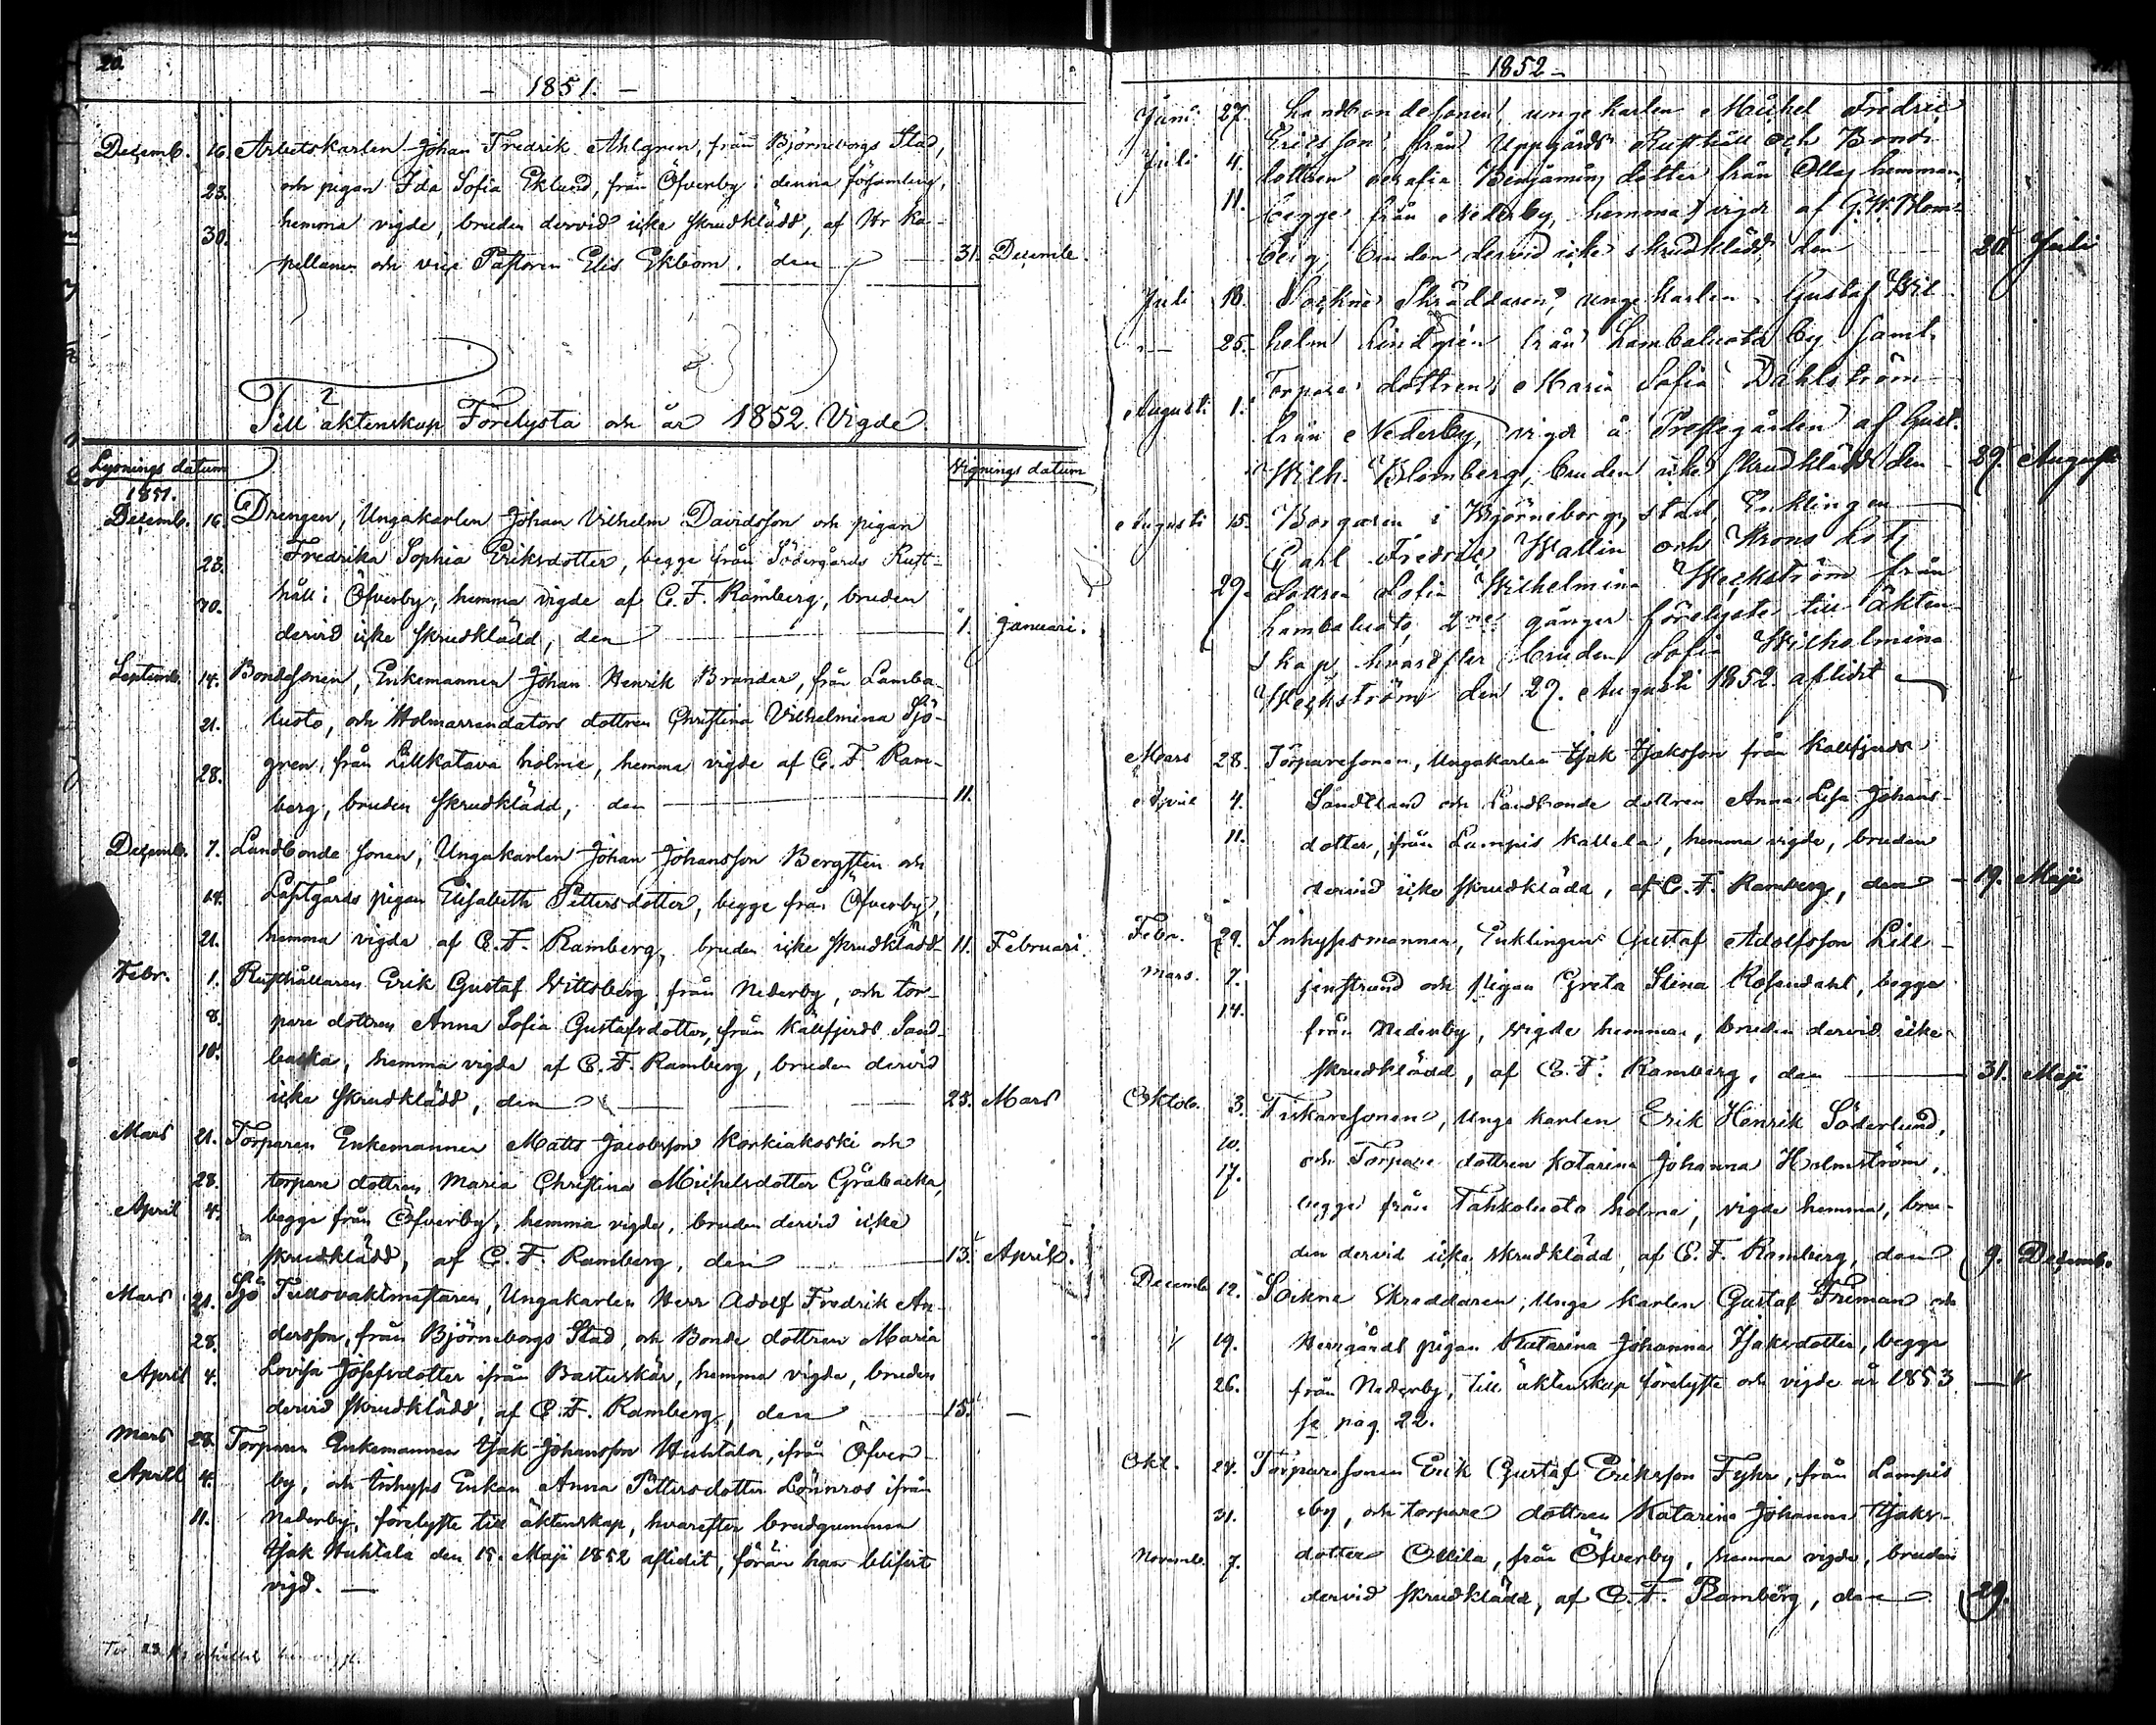 20.
- 1851. -
Decemb. 16. Arbetskarlen Johan Fredrik Ahlgren, från Björneborgs Stad,
23. och pigan Ida Sofia Eklund, från Öfverby i denna församling,
hemma vigde, bruden dervid icke skrudklädd, af Hr Ka-
30. pellanen och vice Pastoren Elis Ekbom, den — 31. Decemb.
Till äktenskap Förelysta och år 1852 Vigde.
Lysnings datum Vignings datum
1851.
Decemb. 16. Drengen, Ungakarlen Johan Vilhelm Davidsson och pigan
23. Fredrika Sophia Eriksdotter, begge från Södergårds Rust-
30. håll i Öfverby, hemma vigde af C. F. Ramberg, bruden
dervid icke skrudklädd, den — 1. Januari.
Septemb. 14. Bondesonen, Enkemannen Johan Henrik Brander, från Lamba-
21. luoto, och Holmarrendators dottren Christina Vilhelmina Sjö-
28. gren, från Lillkatava holme, hemma vigde af C. F. Ram-
berg, bruden skrudklädd, den — 11.
Decemb. 7. Landbonde sonen, Ungakarlen Johan Johansson Bergsten och
14. Loftgårds pigan Elisabeth Pettersdotter, begge från Öfverby,
21. hemma vigde af C. F. Ramberg, bruden icke skrudklädd 11. Februari.
Febr. 1. Rusthållaren Erik Gustaf Wittsberg från Nederby, och tor-
8. pare dottren Anna Sofia Gustafsdotter, från Kallfjerds Sand-
15. backa, hemma vigde af C. F. Ramberg, bruden dervid
icke skrudklädd, den — 25. Mars
Mars 21. Torparen Enkemannen Matts Jacobsson Korkiakoski och
28. torpare dottren Maria Christina Michelsdotter Gråbacka,
April 4. begge från Öfverby, hemma vigde, bruden dervid icke
skrudklädd, af C. F. Ramberg, den — 13. April.
Mars 21. Sjö Tullvaktmästaren, Ungakarlen Herr Adolf Fredrik An-
28. dersson, från Björneborgs Stad, och Bonde dottren Maria
April 4. Lovisa Josefsdotter ifrån Bastuskär, hemma vigde, bruden
dervid skrudklädd, af C. F. Ramberg, den 15. —
Mars 28. Torparen Enkemannen Isak Johansson Huhtala, ifrån Öfver
April 4. by, och Inhyses Enkan Anna Pettersdotter Lönnros ifrån
11. Nederby, förelyste till äktenskap, hvarefter brudgummen
Isak Huhtala den 15. Maji 1852 aflidit, förän han blifvit
vigd. —
1852 -
Juni 27. Landbondesonen, unge karlen Michel Fredric
Ericsson från Uppgårds Rusthåll och Bonde
Juli 4. dottren Serafia Benjamins dotter från Ollas hemman,
11. begge från Nederby, hemma vigde af G. W. Blom-
berg, bruden dervid icke skrudklädd, den 20. Juli
Juli 18. Sockne Skräddaren, unge karlen Gustaf Wil
" 25. helm Lindgrén från Lambaluoto by samt
Torpare dottren Maria Sofia Dahlström
Augusti 1. från Nederby, vigde å Prestegården af Gust.
Wilh. Blomberg, bruden icke skrudklädd den 29. August
Augusti 15. Borgaren i Björneborgs stad, Enklingen
Carl Fredric Wallin och Krons Lots
29. dottren Sofia Wilhelmina Weckström från
Lambaluoto, 2ne gånger förelyste till äkten-
skap hvarefter bruden Sofia Wilhelmina
Weckström den 27. Augusti 1852 aflidit
Mars 28. Torparesonen, Ungakarlen Isak Isaksson från Kallfjerds
April 4. Sandstrand och Landbonde dottren Anna Lisa Johans-
11. dotter, från Lampis Kallela, hemma vigde, bruden
dervid icke skrudklädd, af C. F. Ramberg, den — 19. Maji
Febr. 29. Inhysesmannen, Enklingen Gustaf Adolfsson Lill-
Mars. 7. jenstrand och Pigan Greta Stina Rosendahl, begge
14. från Nederby, vigde hemma, bruden dervid icke
skrudklädd, af C. F. Ramberg, den — 31. Maji
Oktob. 3. Fiskaresonen, Unge karlen Erik Henrik Söderlund,
10. och Torpare dottren Katarina Johanna Holmström,
17. begge från Tahkoluoto holme, vigde hemma, bru-
den dervid icke skrudklädd, af C. F. Ramberg, den 9. Decemb.
Decemb. 12. Sockne Skreddaren, Unge karlen Gustaf Friman och
19. Herrgårds pigan Katarina Johanna Isaksdotter, begge
26. från Nederby, till äktenskap förelyste och vigde år 1853 —
se pag. 22.
Okt. 24. Torparesonen Erik Gustaf Eriksson Fyhr, från Lampis
31. by, och torpare dottren Katarina Johanna Isaks-
Novemb. 7. dotter Ollila, från Öfverby, hemma vigde, bruden
dervid skrudklädd, af C. F. Ramberg, den 29.